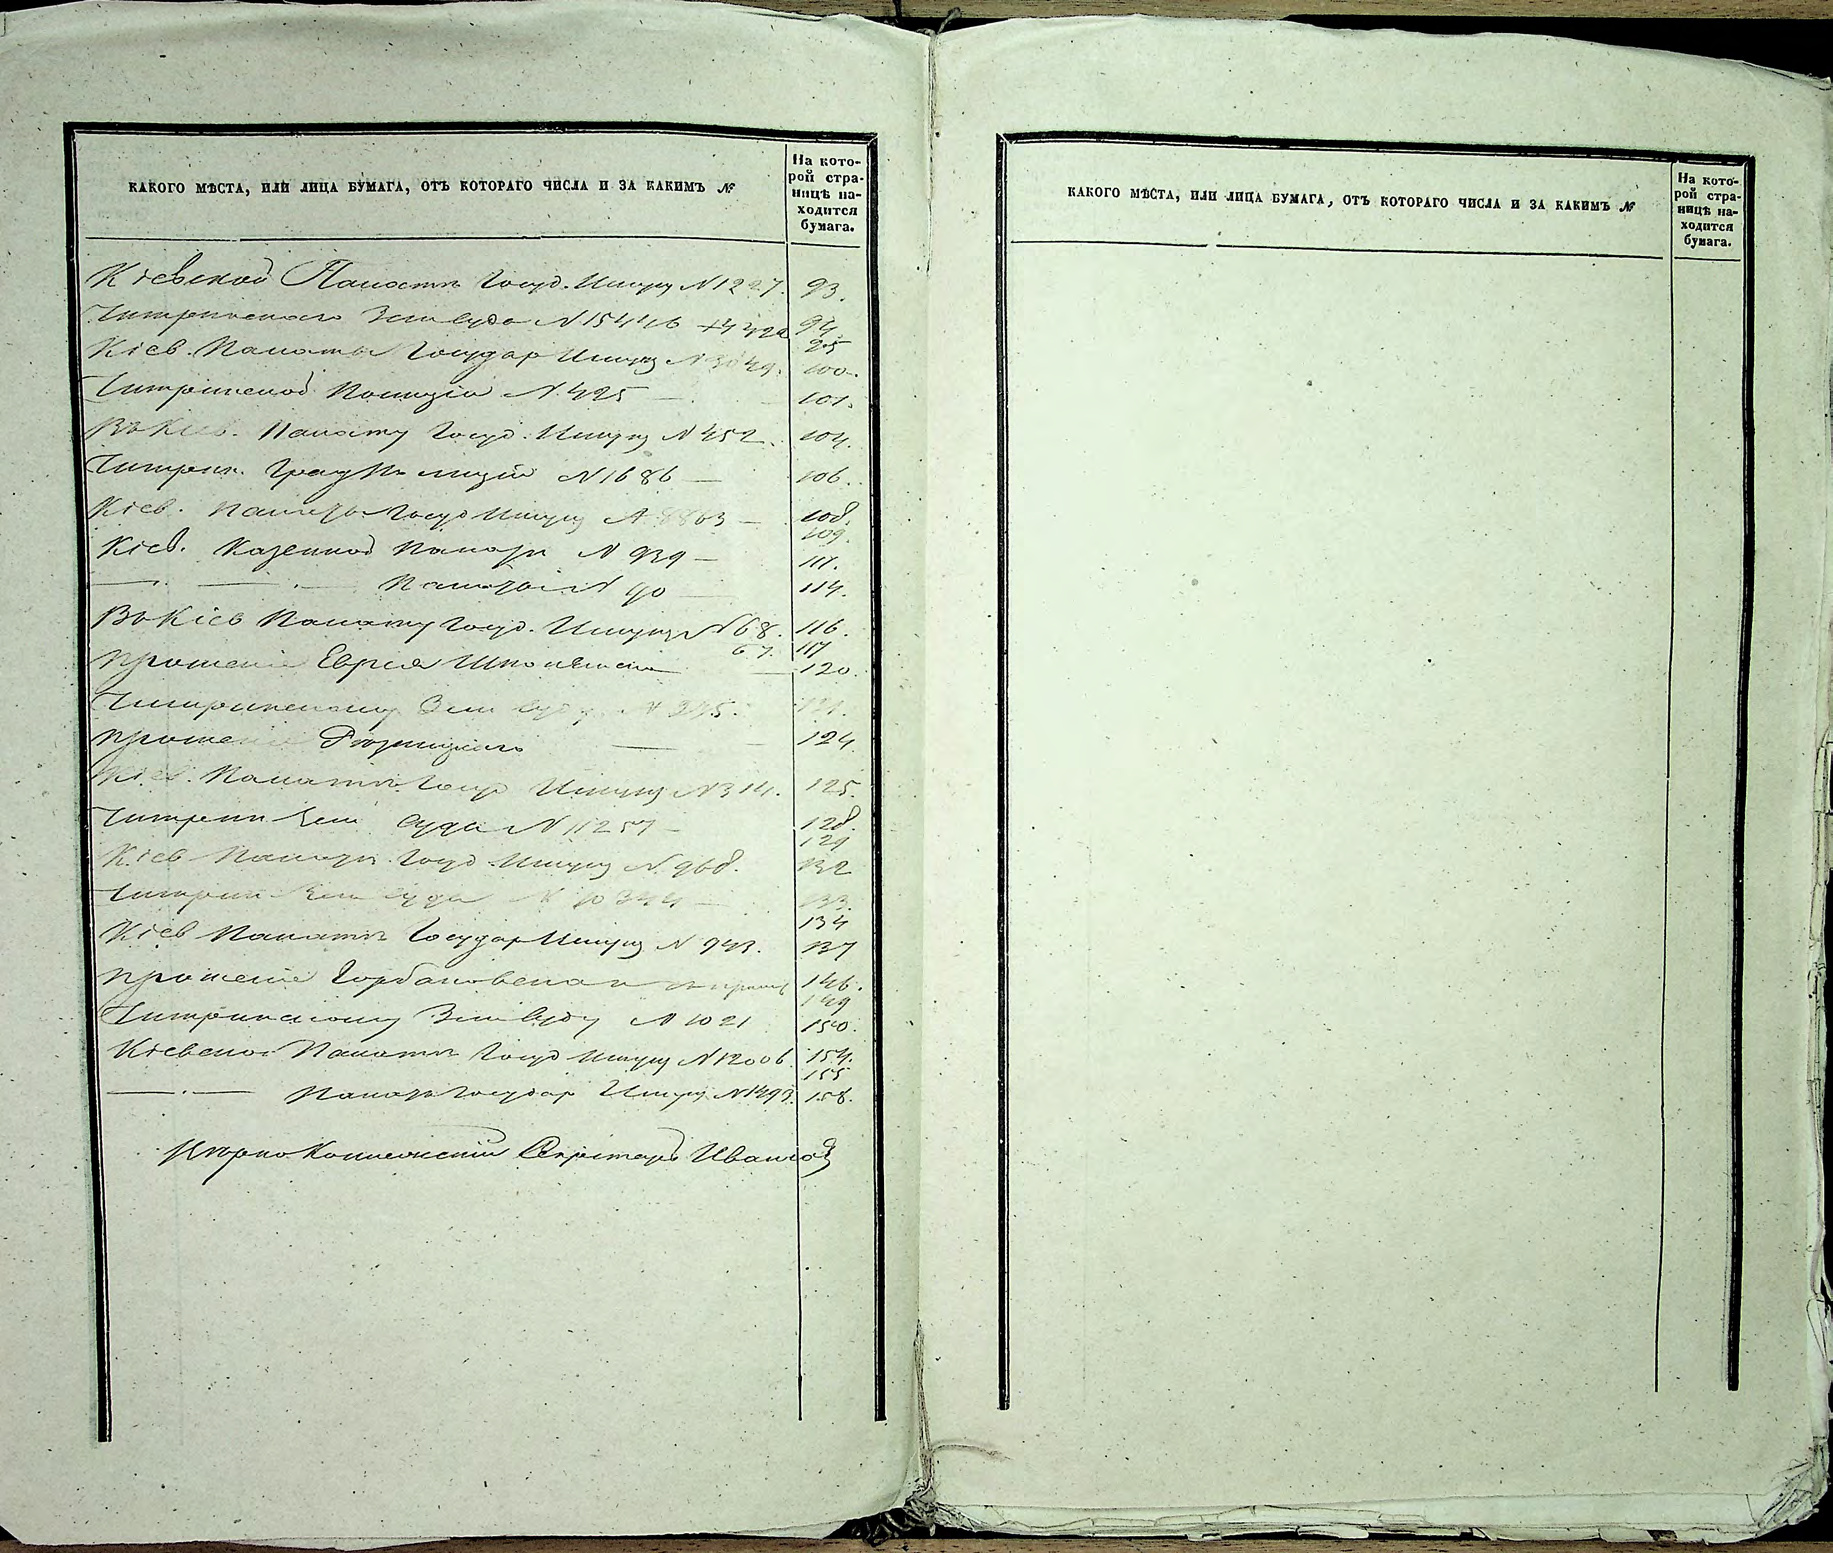 КАКОГО МѢСТА, ИЛИ ЛИЦА БУМАГА, ОТЪ КОТОРАГО ЧИСЛА И ЗА КАКИМЪ №
На кото-
рой стра-
ницѣ на-
ходится
бумага.
Кіевской Палаты Госуд. Имущ N 1227. 93.
Чигринскаго Зем Суда N 15446 94
95
Кіев. Палаты Государ Имущ N 3049. 100.
Чигринской Полиціи N 425 101.
Въ Кіев. Палату Госуд. Имущ N 452. 104.
Чигрин. Град Полиціи N 1686 106.
Кіев. Палаты Госуд Имущ N 8863 108.
109.
Кіев. Казенной Палаты N 939 111.
Палаты N 90 114.
Въ Кіев Палату Госуд. Имущ N 68. 116.
67. 117
прошеніе Еврея 120.
Чигринскому Зем Суду N 395. 121.
прошеніе 124
Кіев. Палаты Госуд Имущ N 314. 125.
Чигрин Зем Суда N 11257 128.
129
Кіев Палаты Госуд. Имущ N 968. 132
Чигрин Зем Суда N 10344 133.
134
Кіев Палаты Государ Имущ N 943. 137
прошеніе Горбановскаго 146.
149
Чигринскому Зем Суду N 1021 150.
Кіевской Палаты Госуд Имущ N 12006. 154.
155
Палаты Государ Имущ N 1493. 158.
Коллежскій Секретарь Иванов
КАКОГО МѢСТА, ИЛИ ЛИЦА БУМАГА, ОТЪ КОТОРАГО ЧИСЛА И ЗА КАКИМЪ №
На кото-
рой стра-
ницѣ на-
ходится
бумага.